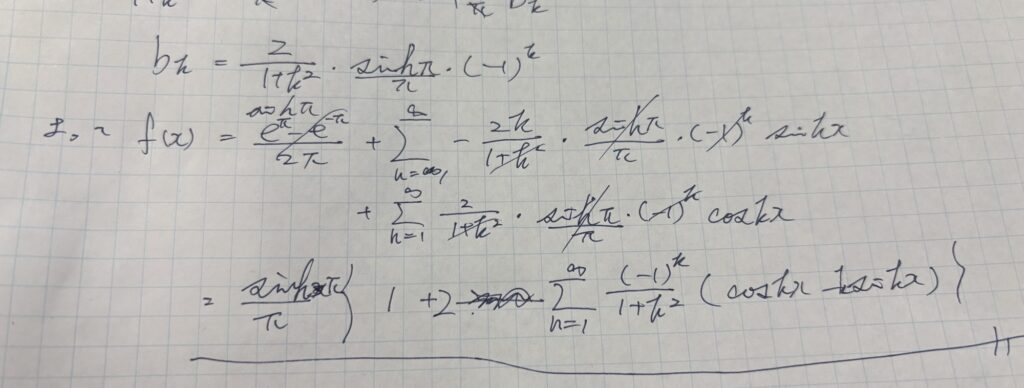 b_k = \frac{2}{1+k^2} \cdot \frac{\sinh π}{π} \cdot (-1)^k
f(x) = \frac{e^π - e^{-π}}{2π} sinhπ + \sum_{n=1}^{∞} - \frac{2k}{1+k^2} \cdot \frac{\sinh π}{π} \cdot (-1)^k \sin kx
+ \sum_{n=1}^{∞} \frac{2}{1+k^2} \cdot \frac{\sinh π}{π} \cdot (-1)^k \cos kx
= \frac{\sinh π}{π} \{ 1 + 2 \sum_{n=1}^{∞} \frac{(-1)^k}{1+k^2} (\cos kx - k \sin kx) \}